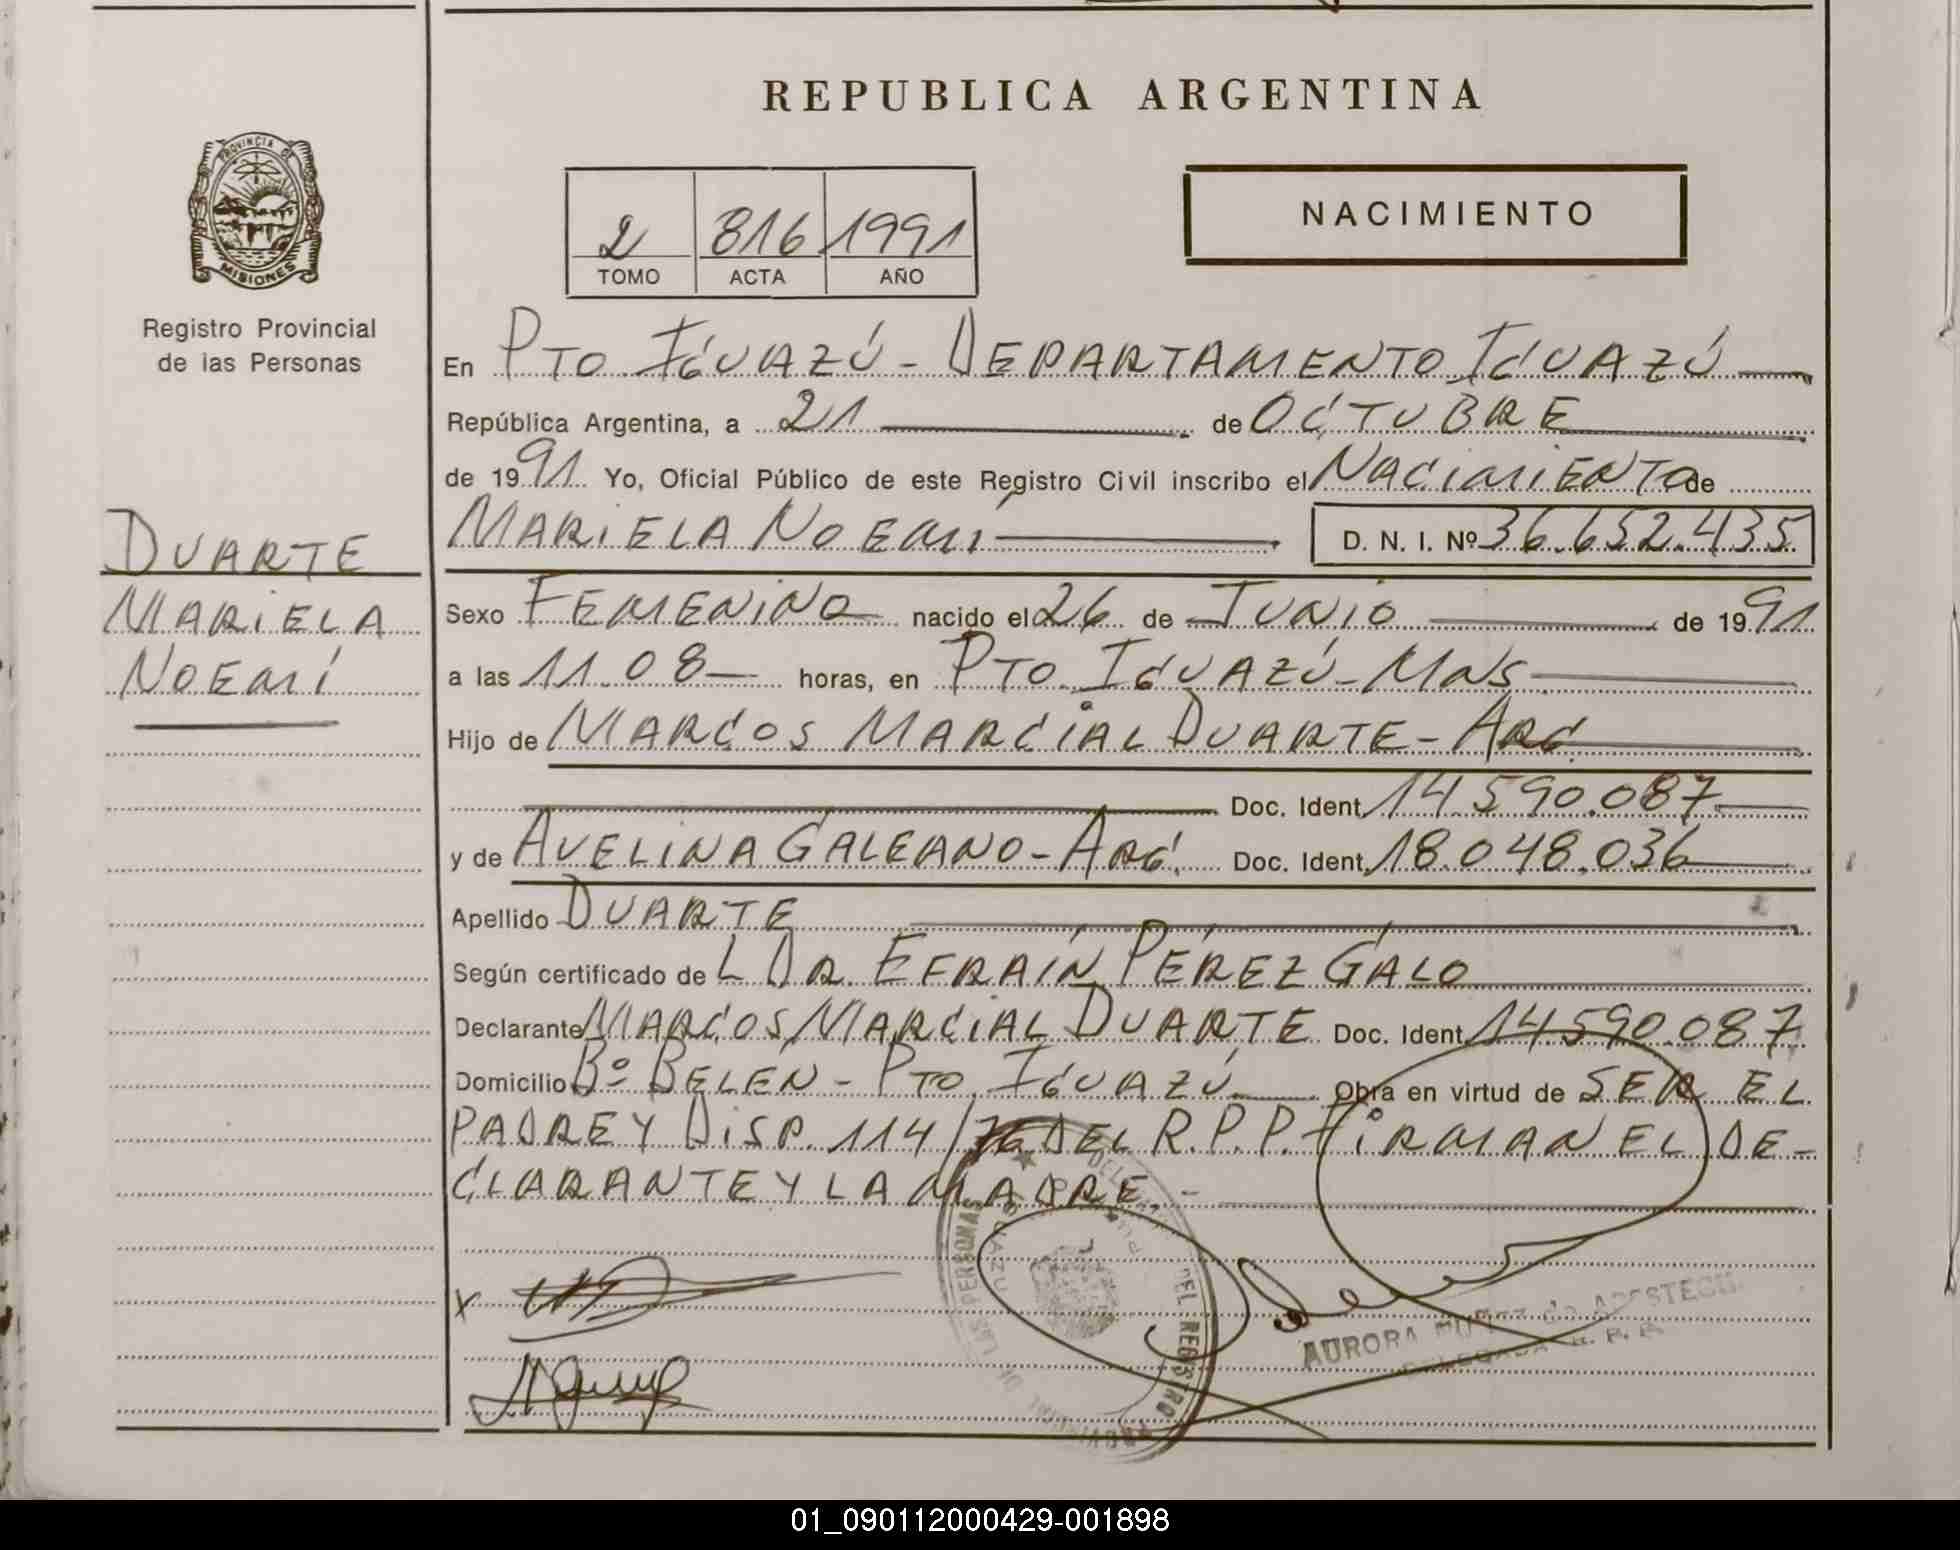 REPUBLICA ARGENTINA
PROVINCIA DE
MISIONES
Registro Provincial
de las Personas
2 816 1991
TOMO ACTA AÑO
NACIMIENTO
En PTO IGUAZÚ - DEPARTAMENTO IGUAZÚ
República Argentina, a 21 de OCTUBRE
de 1991 Yo, Oficial Público de este Registro Civil inscribo el NACIMIENTO de
MARIELA NOEMÍ D. N. I. Nº 36.652.435
DUARTE
MARIELA
NOEMÍ
Sexo FEMENINO nacido el 26 de JUNIO de 1991
a las 11.08 horas, en PTO IGUAZÚ - MNS
Hijo de MARCOS MARCIAL DUARTE - ARG
Doc. Ident. 14.590.087
y de AVELINA GALEANO - ARG. Doc. Ident. 18.048.036
Apellido DUARTE
Según certificado de L DR. EFRAÍN PÉREZ GALO
Declarante MARCOS MARCIAL DUARTE Doc. Ident. 14.590.087
Domicilio Bº BELÉN - PTO. IGUAZÚ Obra en virtud de SER EL
PADRE Y DISP. 114/76 DEL R.P.P. FIRMAN EL DE-
CLARANTE Y LA MADRE. -
X
DEL REGISTRO PROVINCIAL DE LAS PERSONAS
AURORA
DELEGADA R. P. P.
01_090112000429-001898